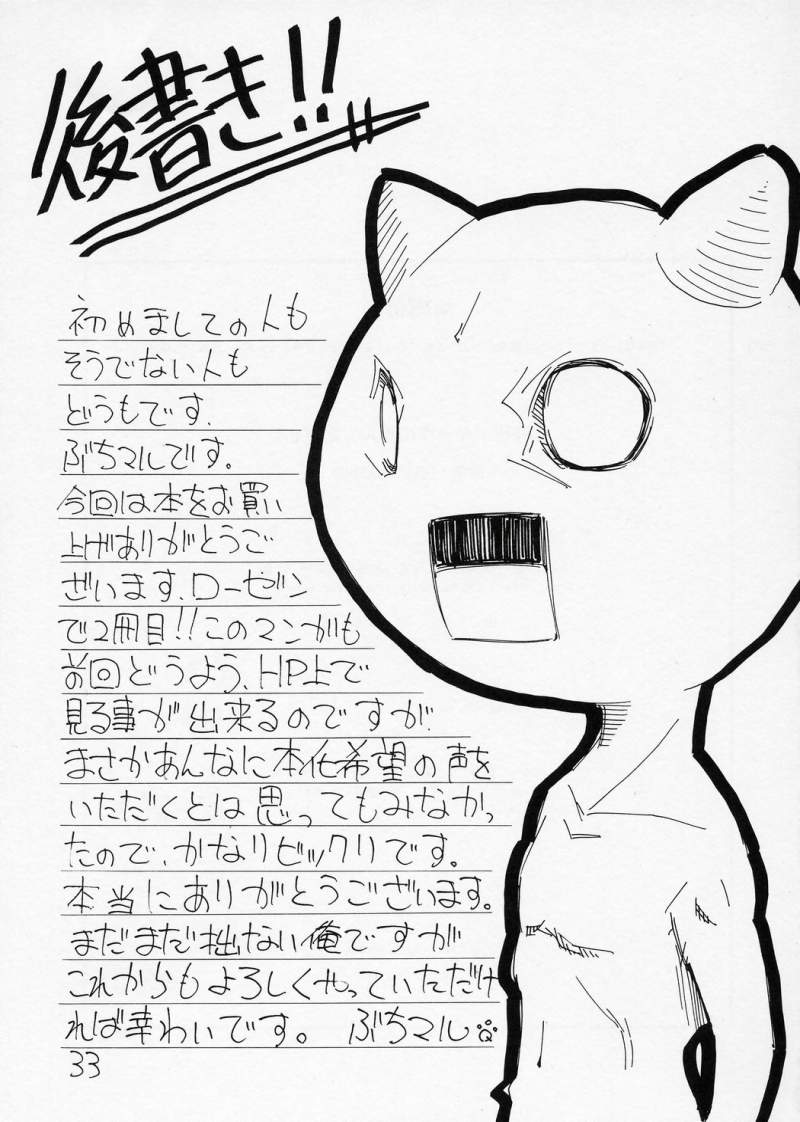 後書き!!
初めましての人も
そうでない人も
どうもです.
ぶちマルです。
今回は本をお買い
上げありがとうご
ざいます.ローゼン
で2冊目!!このマンガも
前回どうよう、HP上で
見る事が出来るのですが、
まさかあんなに本化希望の声を
いただくとは思ってもみなかっ
たので、かなりビックリです。
本当にありがとうございます。
まだまだ拙ない俺ですが
これからもよろしくやっていただけ
れば幸わいです。 ぶちマル
33